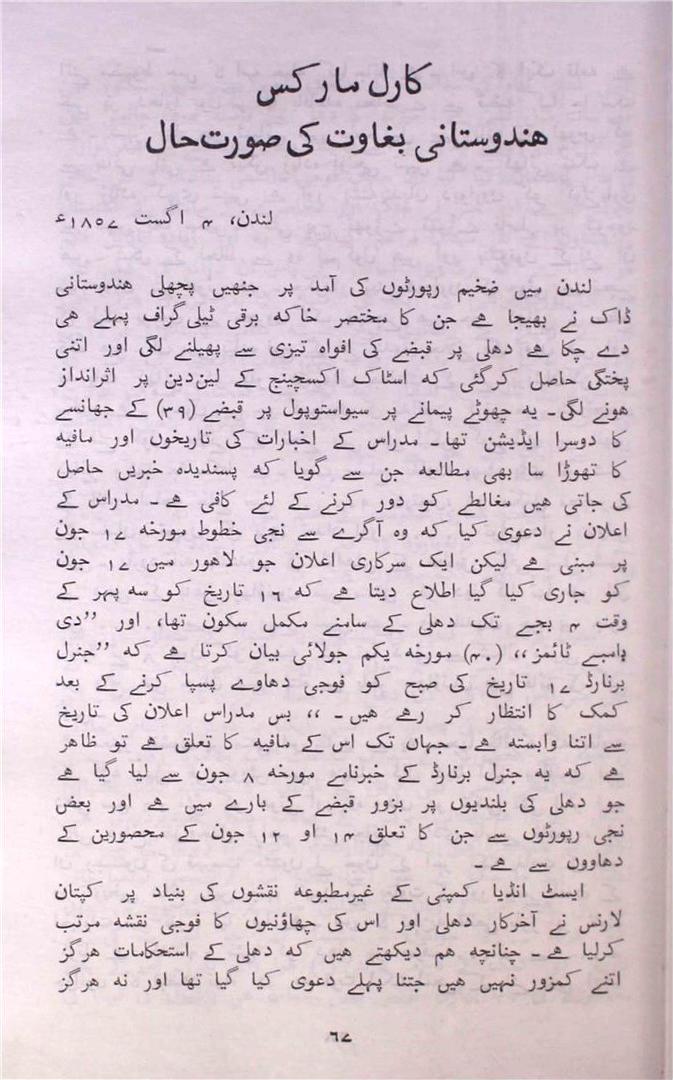 کارل مارکس
ھندوستانی بغاوت کی صورت حال
لندن، ۴ اگست ۱۸۵۷ء
لندن میں ضخیم رپورٹوں کی آمد پر جنھیں پچھلی ھندوستانی
ڈاک نے بھیجا ھے جن کا مختصر خاکہ برقی ٹیلی گراف پہلے ھی
دے چکا ھے دھلی پر قبضے کی افواہ تیزی سے پھیلنے لگی اور اتنی
پختگی حاصل کر گئی کہ اسٹاک اکسچینج کے لین دین پر اثرانداز
ھونے لگی۔ یہ چھوٹے پیمانے پر سیواستوپول پر قبضے (۳۹) کے جھانسے
کا دوسرا ایڈیشن تھا۔ مدراس کے اخبارات کی تاریخوں اور مافیہ
کا تھوڑا سا بھی مطالعہ جن سے گویا کہ پسندیدہ خبریں حاصل
کی جاتی ھیں مغالطے کو دور کرنے کے لئے کافی ھے۔ مدراس کے
اعلان نے دعوی کیا کہ وہ آگرے سے نجی خطوط مورخہ ۱۷ جون
پر مبنی ھے لیکن ایک سرکاری اعلان جو لاھور میں ۱۷ جون
کو جاری کیا گیا اطلاع دیتا ھے کہ ۱۶ تاریخ کو سہ پہر کے
وقت ۴ بجے تک دھلی کے سامنے مکمل سکون تھا، اور ”دی
بامبے ٹائمز،، (۴۰) مورخہ یکم جولائی بیان کرتا ھے کہ ”جنرل
برنارڈ ۱۷ تاریخ کی صبح کو فوجی دھاوے پسپا کرنے کے بعد
کمک کا انتظار کر رھے ھیں۔ ،، بس مدراس اعلان کی تاریخ
سے اتنا وابستہ ھے۔ جہاں تک اس کے مافیہ کا تعلق ھے تو ظاھر
ھے کہ یہ جنرل برنارڈ کے خبرنامے مورخہ ۸ جون سے لیا گیا ھے
جو دھلی کی بلندیوں پر بزور قبضے کے بارے میں ھے اور بعض
نجی رپورٹوں سے جن کا تعلق ۱۴ او ۱۲ جون کے محصورین کے
دھاووں سے ھے۔
ایسٹ انڈیا کمپنی کے غیرمطبوعہ نقشوں کی بنیاد پر کپتان
لارنس نے آخرکار دھلی اور اس کی چھاؤنیوں کا فوجی نقشہ مرتب
کرلیا ھے۔ چنانچہ ھم دیکھتے ھیں کہ دھلی کے استحکامات ھرگز
اتنے کمزور نہیں ھیں جتنا پہلے دعوی کیا گیا تھا اور نہ ھرگز
۶۷